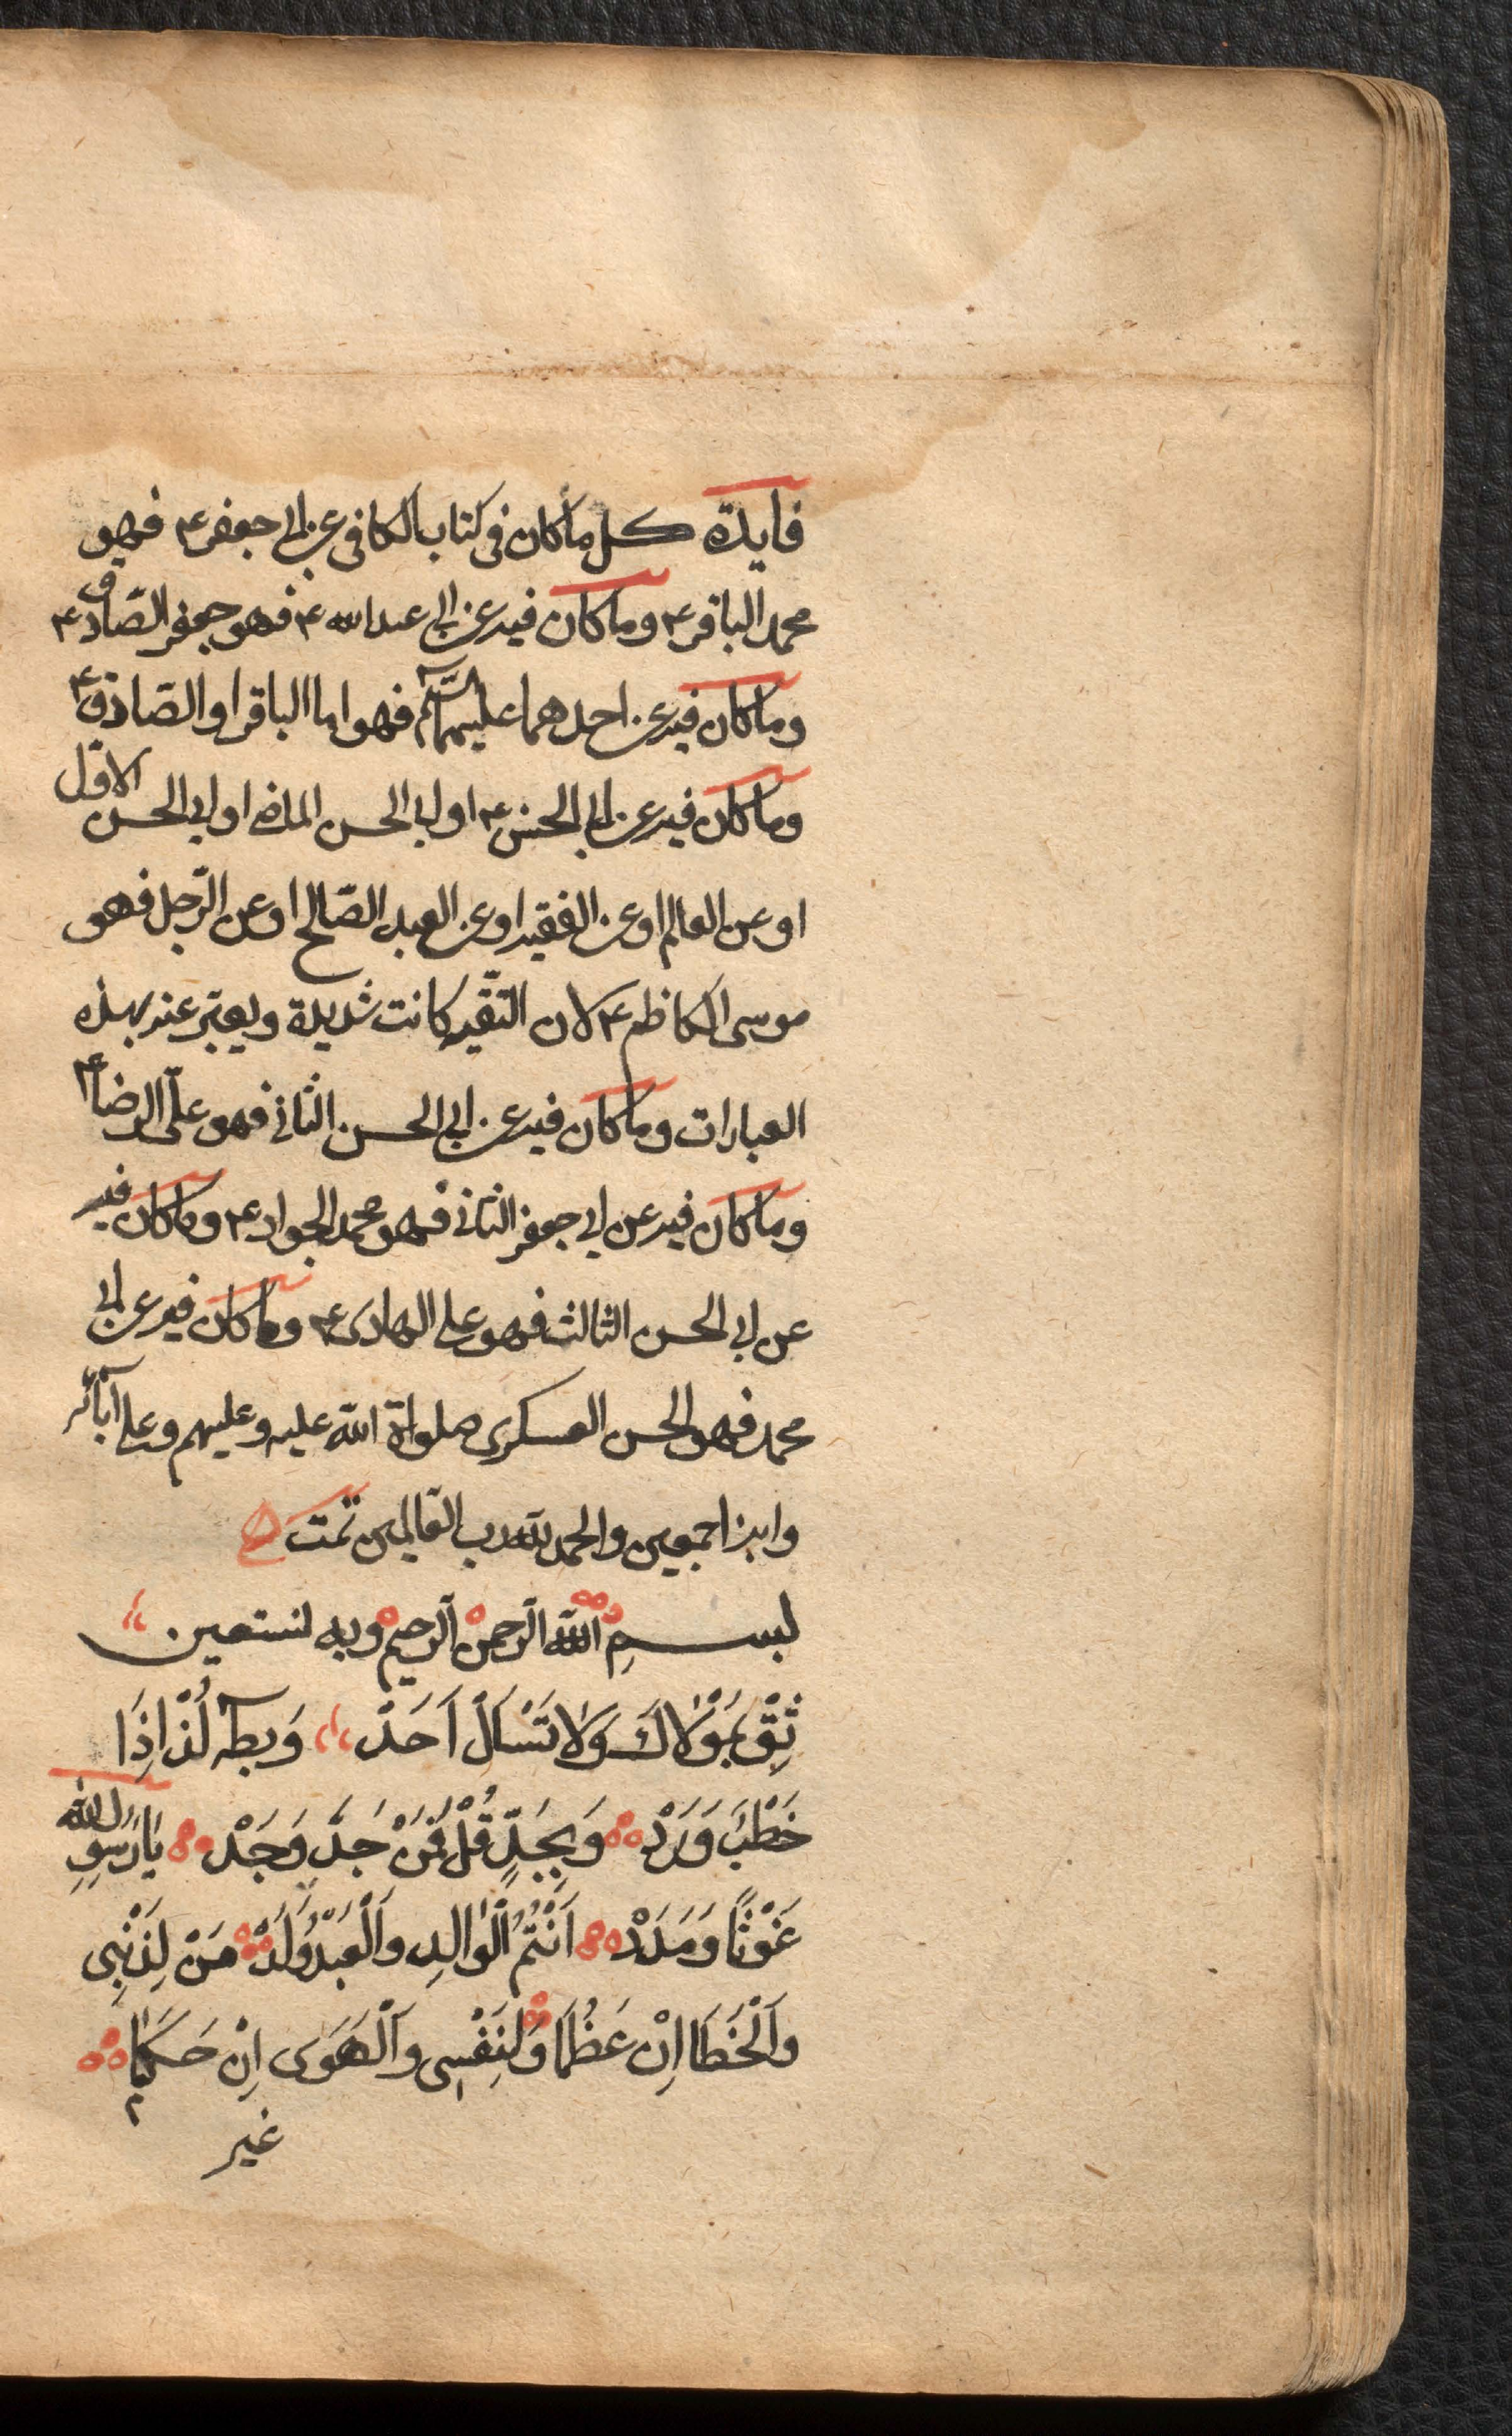 فايدة كل ما كان فى كتاب الكافى عن ابى جعفر ع فهو
محمد الباقر ع وما كان فيه عن ابى عبد الله ع فهو جعفر الصّادق ع
وما كان فيه عن احدهما عليهما السّلم فهو اما الباقر او الصّادق ع
وما كان فيه عن ابى الحسن ع او ابى الحسن الماضى او ابى الحسن الاوّل
او عن العالم او عن الفقيه او عن العبد الصّالح او عن الرّجل فهو
موسى الكاظم ع لان التقّيه كانت شديدة ويعبّر عنه بهذه
العبارات وما كان فيه عن ابى الحسن الثانى فهو علىّ الرضا ع
وما كان فيه عن ابى جعفر الثانى فهو محمد الجواد ع وما كان فيه
عن ابى الحسن الثالث فهو على الهادى ع وما كان فيه عن ابى
محمد فهو الحسن العسكرى صلواة اللّه عليه وعليهم وعلى آبائه
وابنه اجمعين والحمد للّه رب العالمين تمت
بسمِ اللّه الرّحمن الرّحيم وبه نستعين
ثِقْ بِمَوْلاكَ وَلا تَسْاَلْ اَحَدْ وَبِطۤهٰ لُذْ اِذَا
خَطْبٌ وَرَدْ وَبِجَدٍّ قُلْ فَمَنْ جَدَّ وَجَدْ يَا رَسُولَ اللّه
غَوْثًا وَمَدَدْ اَنْتُمُ الْوٰالِد وَالْعَبْدُ وَلَدْ مَنْ لِذَنْبِى
وَالْخَطَا اِنْ عَظُمَا وَلِنَفْسِى وَالْهَوَى اِنْ حَكَمَا
غير